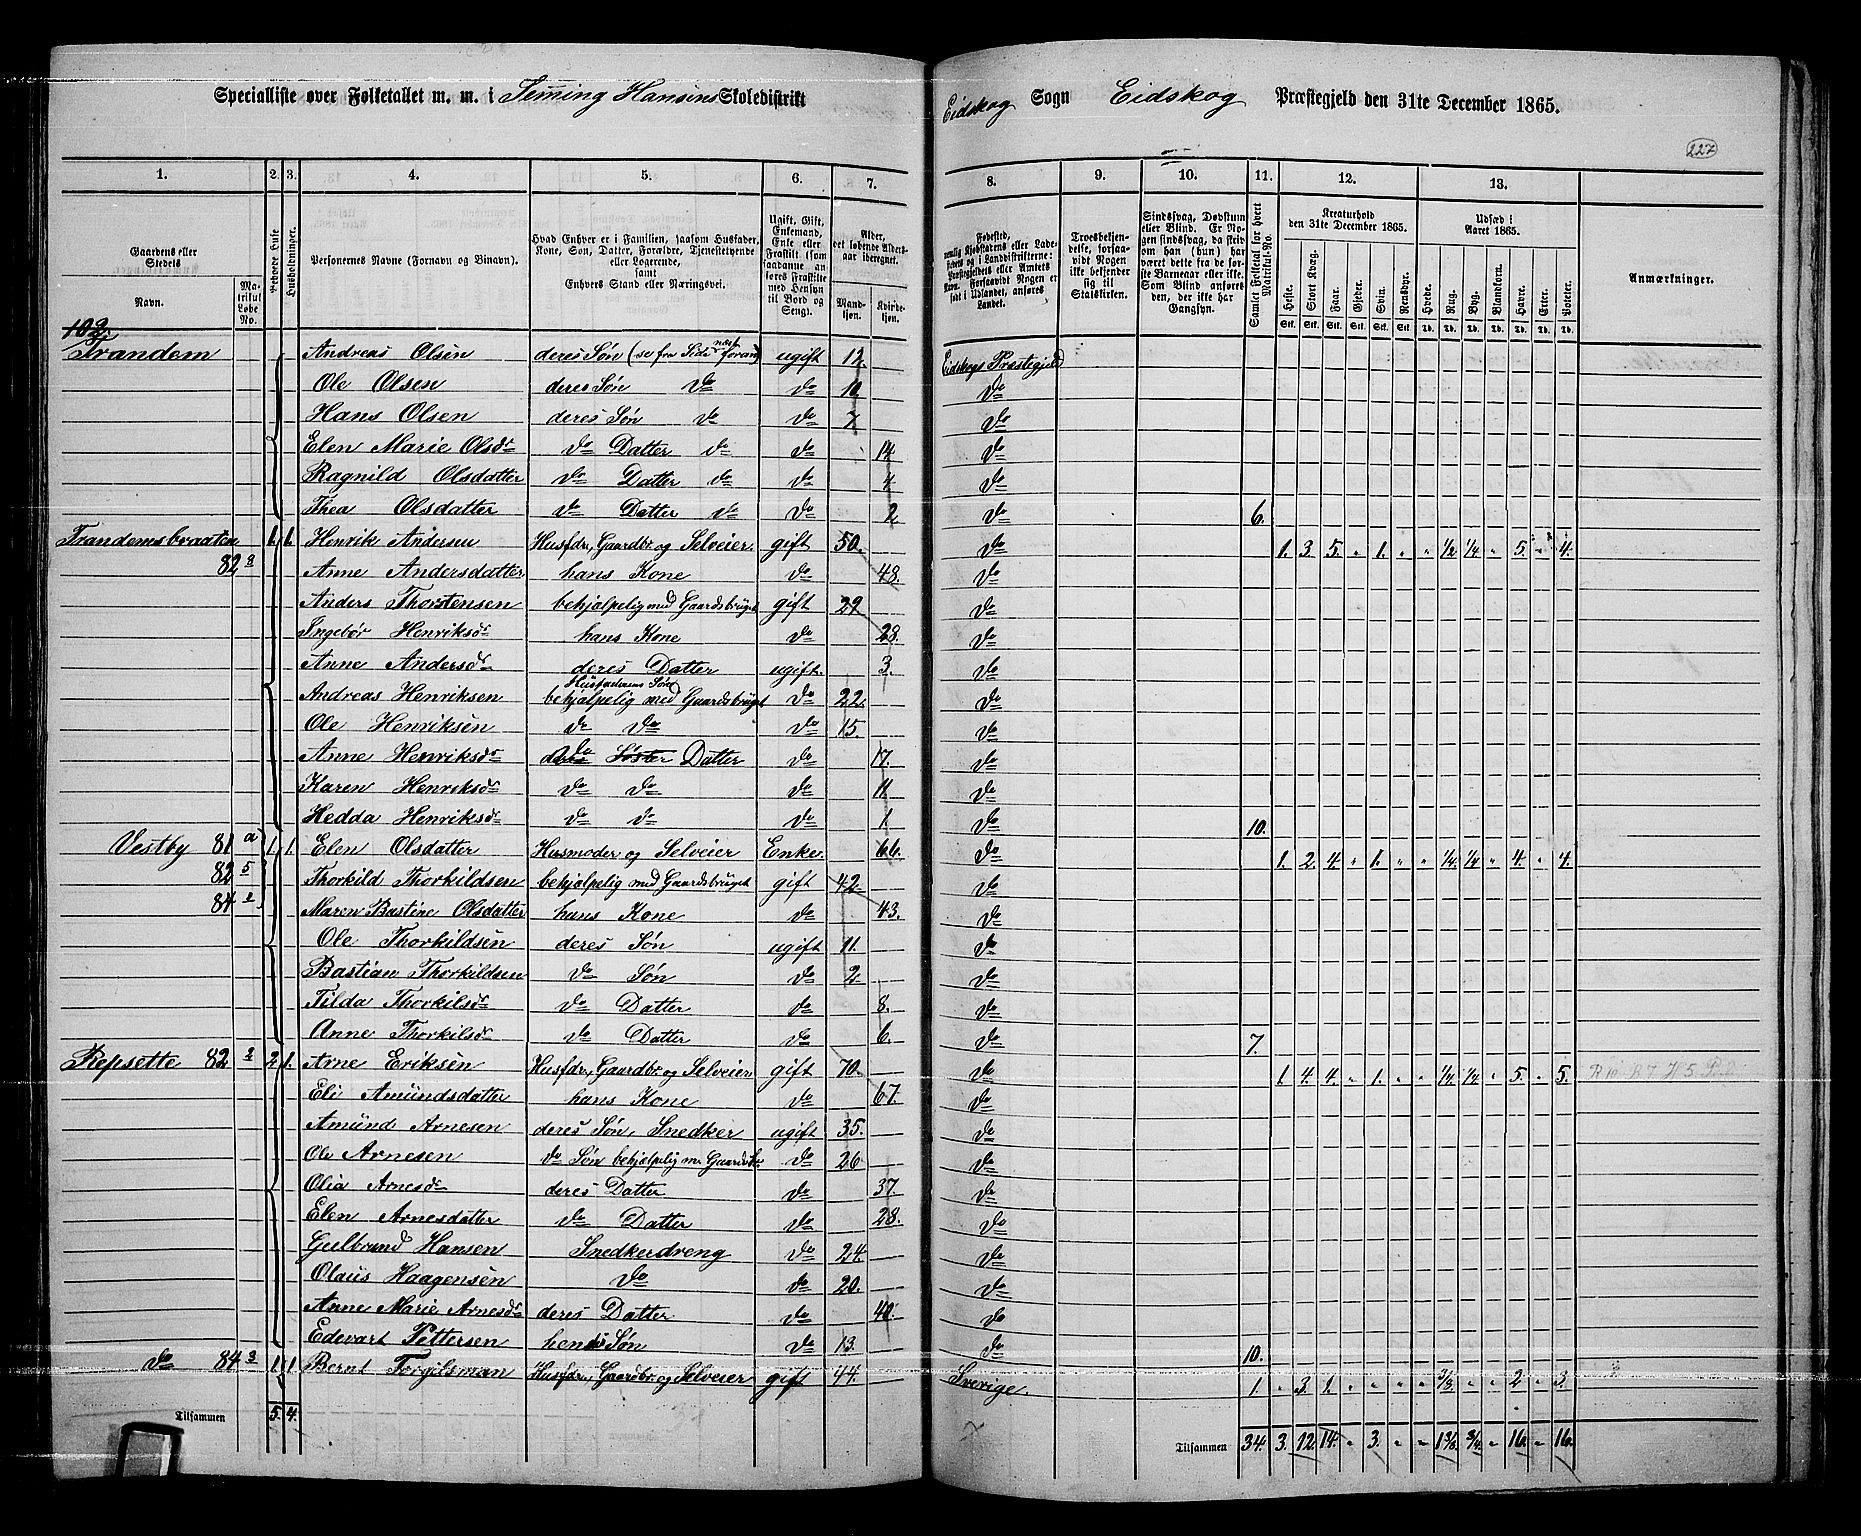 Specialliste over Folketallet m. m. i Temming Hansens Skoledistrikt Eidskog Sogn Eidskog Præstegjeld den 31te December 1865.
227
1. 2. 3. 4. 5. 6. 7. 8. 9. 10. 11. 12. 13.
Gaardens eller Stedets
Navn. Matrikul Løbe No.
Beboede Huse
Husholdninger.
Personernes Navne (Fornavn og Binavn).
Hvad Enhver er i Familien, saasom Husfader, Kone, Søn, Datter, Forældre, Tjenestetyende eller Logerende, samt Enhvers Stand eller Næringsvei.
Ugift, Gift, Enkemand, Enke eller Fraskilt (som saadanne anføres Fraskilte med Hensyn til Bord og Seng).
Alder, det løbende Alders-aar iberegnet.
Mand-kjøn. Kvinde-kjøn.
Fødested, nemlig Kjøbstadens eller Ladestedets og i Landdistrikterne: Præstegjeldets eller Amtets Navn. Forsaavidt Nogen er født i Udlandet, anføres Landet.
Troesbekjendelse, forsaavidt Nogen ikke bekjender sig til Statskirken.
Sindssvag, Døvstum eller Blind. Er Nogen sindssvag, da skrives om han (hun) har været dette fra de første Barneaar eller ikke. Som Blind anføres den, der ikke har Gangsyn.
Samlet Folketal for hvert Matrikul-No.
Kreaturhold den 31te December 1865.
Heste. Stort Kvæg. Faar. Gjeder. Svin. Rensdyr.
Udsæd i Aaret 1865.
Hvede. Rug. Byg. Blandkorn. Havre. Erter. Poteter.
Anmærkninger.
102
Trandem Andreas Olsen deres Søn (se fra Side næst foran) ugift 12. Eidskogs Præstegjeld
Ole Olsen deres Søn do do 10 do
Hans Olsen deres Søn do do 7 do
Elen Marie Olsdr do Datter do do 14 do
Ragnild Olsdatter do Datter do do 4 do
Thea Olsdatter do Datter do do 2 do 6.
Trandemsbraaten 82 8 1. 1. Henrik Andersen Husfdr, Gaardbr og Selveier. gift 50. do 1. 3. 5. " 1. " " ½ ¼ " 5. " 4.
Anne Andersdatter hans Kone do 48. do
Anders Thorstensen behjælpelig med Gaardsbruget gift 29 do
Ingebor Henriksdr hans Kone do 28. do
Anne Andersdr deres Datter ugift. 3. do
Andreas Henriksen Husfaderens Søn behjælpelig med Gaardsbruget do 22. do
Ole Henriksen do do do 15. do
Anne Henriksdr do Søster Datter do 17. do
Karen Henriksdr do do do 11. do
Hedda Henriksdr do do do 1. do 10.
Vestby 81 a 1. 1. Elen Olsdatter Husmoder og Selveier Enke. 66. do 1. 2. 4. " 1. " " ¼ ¼ " 4. " 4.
82 5 Thorkild Thorkildsen behjælpelig med Gaardsbruget gift 42. do
84 2 Maren Bastine Olsdatter hans Kone do 43. do
Ole Thorkildsen deres Søn ugift 11. do
Bastian Thorkildsen do Søn do 2 do
Tilda Thorkilsdr do Datter do 8. do
Anne Thorkilsdr do Datter do 6. do 7.
Repsette 82 2 2 1. Arne Eriksen Husfdr, Gaardbr og Selveier gift 70. do 1. 4. 4. " 1. " " ¼ ¼ " 5. " 5.
Eli Amundsdatter hans Kone do 67. do
Amund Arnesen deres Søn, Snedker ugift 35. do
Ole Arnesen do Søn behjælpelig m Gaardsbr. do 26 do
Olia Arnesdr deres Datter do 37. do
Elen Arnesdatter do Datter do 28. do
Gulbrand Hansen Snedkerdreng do 24. do
Olaus Haagensen do do 20. do
Anne Marie Arnesdr deres Datter do 40. do
Edevart Pettersen hendes Søn do 13. do 10.
do 84 3 1. 1. Bernt Torgilsman Husfdr, Gaardbr og Selveier gift 44. Sverige 1. " 3. 1. " " " " 3/8 " " 2 " 3.
Tilsammen 5. 4. Tilsammen 34. 3. 12. 14. " 3. " " 1 3/8. ¾. " 16. " 16.